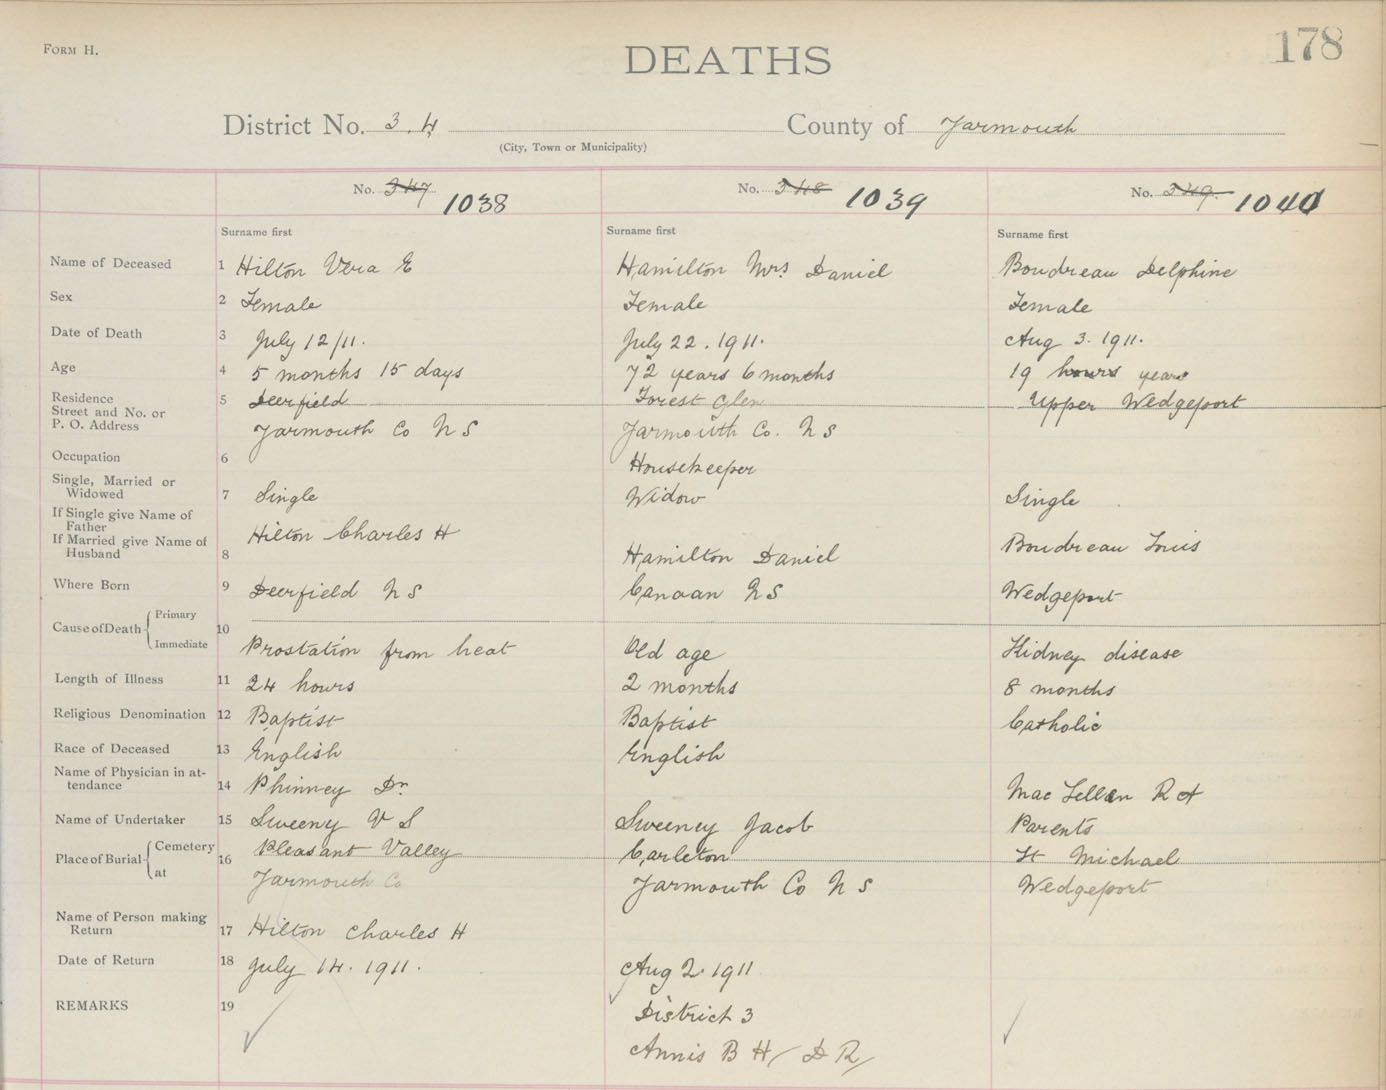 FORM H.
DEATHS
178
District No. 3.4
County of Yarmouth
(City, Town or Municipality)
No. 347 1038
No. 348 1039
No. 349 1040
Surname first
Surname first
Surname first
Name of Deceased 1 Hilton Vera E
Hamilton Mrs Daniel
Boudreau Delphine
Sex 2 Female
Female
Female
Date of Death 3 July 12/11.
July 22. 1911.
Aug 3. 1911.
Age 4 5 months 15 days
72 years 6 months
19 hours years
Residence
Street and No. or
P. O. Address
5 Deerfield
Yarmouth Co N S
Forest Glen
Yarmouth Co. N S
Upper Wedgeport
Occupation 6
Housekeeper
Single, Married or
Widowed
7 Single
Widow
Single
If Single give Name of
Father
If Married give Name of
Husband
8
Hilton Charles H
Hamilton Daniel
Boudreau Louis
Where Born 9 Deerfield N S
Canaan N S
Wedgeport
Cause of Death Primary
Immediate
10
Prostation from heat
Old age
Kidney disease
Length of Illness 11 24 hours
2 months
8 months
Religious Denomination 12 Baptist
Baptist
Catholic
Race of Deceased 13 English
English
Name of Physician in at-
tendance
14 Phinney Dr
MacLellan R A
Name of Undertaker 15 Sweeny V S
Sweeney Jacob
Parents
Place of Burial Cemetery
at
16
Pleasant Valley
Yarmouth Co
Carleton
Yarmouth Co N S
St Michael
Wedgeport
Name of Person making
Return
17 Hilton Charles H
Date of Return 18 July 14. 1911.
Aug 2. 1911
REMARKS 19
District 3
Annis B H / D R /